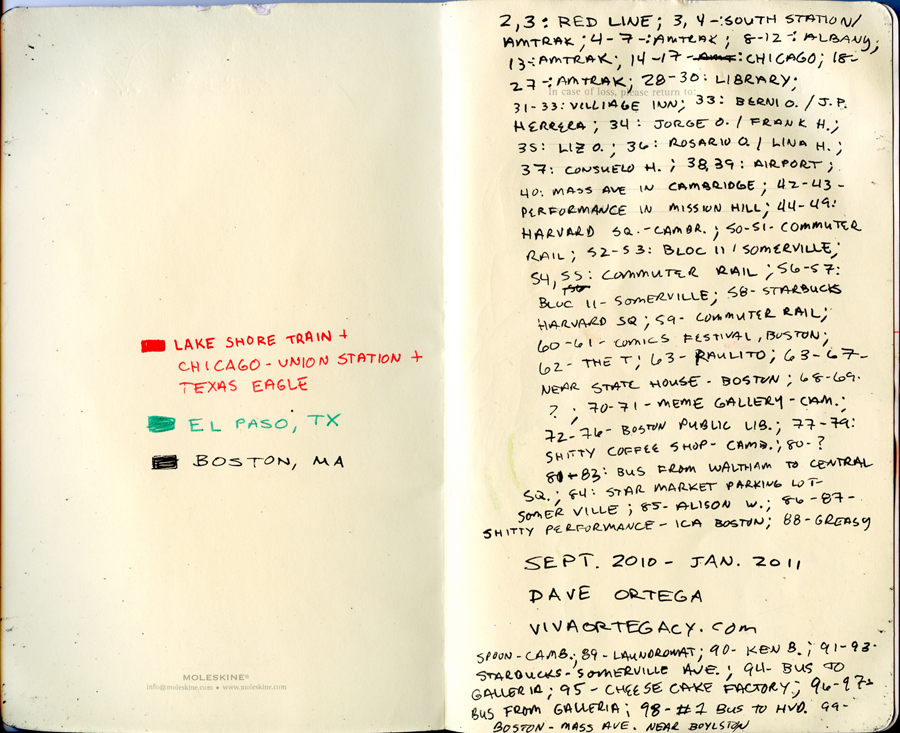 LAKE SHORE TRAIN +
CHICAGO - UNION STATION +
TEXAS EAGLE
EL PASO, TX
BOSTON, MA
MOLESKINE®
info@moleskine.com • www.moleskine.com
2,3: RED LINE; 3, 4-: SOUTH STATION/
AMTRAK; 4-7-: AMTRAK; 8-12-: ALBANY;
13-: AMTRAK; 14-17-: CHICAGO; 18-
27-: AMTRAK; 28-30: LIBRARY;
In case of loss, please return to:
31-33: VILLIAGE INN; 33: BERNI O. / J.P.
HERRERA; 34: JORGE O. / FRANK H.;
35: LIZ O.; 36: ROSARIO O. / LINA H.;
37: CONSUELO H.; 38,39: AIRPORT;
40: MASS AVE IN CAMBRIDGE; 42-43-
PERFORMANCE IN MISSION HILL; 44-49:
HARVARD SQ. - CAMBR.; 50-51- COMMUTER
RAIL; 52-53: BLOC 11 / SOMERVILLE;
54, 55: COMMUTER RAIL; 56-57:
BLOC 11 - SOMERVILLE; 58- STARBUCKS
HARVARD SQ; 59- COMMUTER RAIL;
60-61- COMICS FESTIVAL, BOSTON;
62- THE T; 63- RAULITO; 63-67-
NEAR STATE HOUSE - BOSTON; 68-69-
?; 70-71- MEME GALLERY - CAM.;
72-76- BOSTON PUBLIC LIB.; 77-79:
SHITTY COFFEE SHOP - CAMB.; 80-?
80+83: BUS FROM WALTHAM TO CENTRAL
SQ.; 84: STAR MARKET PARKING LOT-
SOMERVILLE; 85- ALISON W.; 86-87-
SHITTY PERFORMANCE - ICA BOSTON; 88- GREASY
SEPT. 2010 - JAN. 2011
DAVE ORTEGA
VIVAORTEGACY.COM
SPOON - CAMB.; 89- LAUNDROMAT; 90- KEN B.; 91-93-
STARBUCKS - SOMERVILLE AVE.; 94- BUS TO
GALLERIA; 95- CHEESE CAKE FACTORY; 96-97-
BUS FROM GALLERIA; 98- #1 BUS TO HVD. 99-
BOSTON - MASS AVE. NEAR BOYLSTON